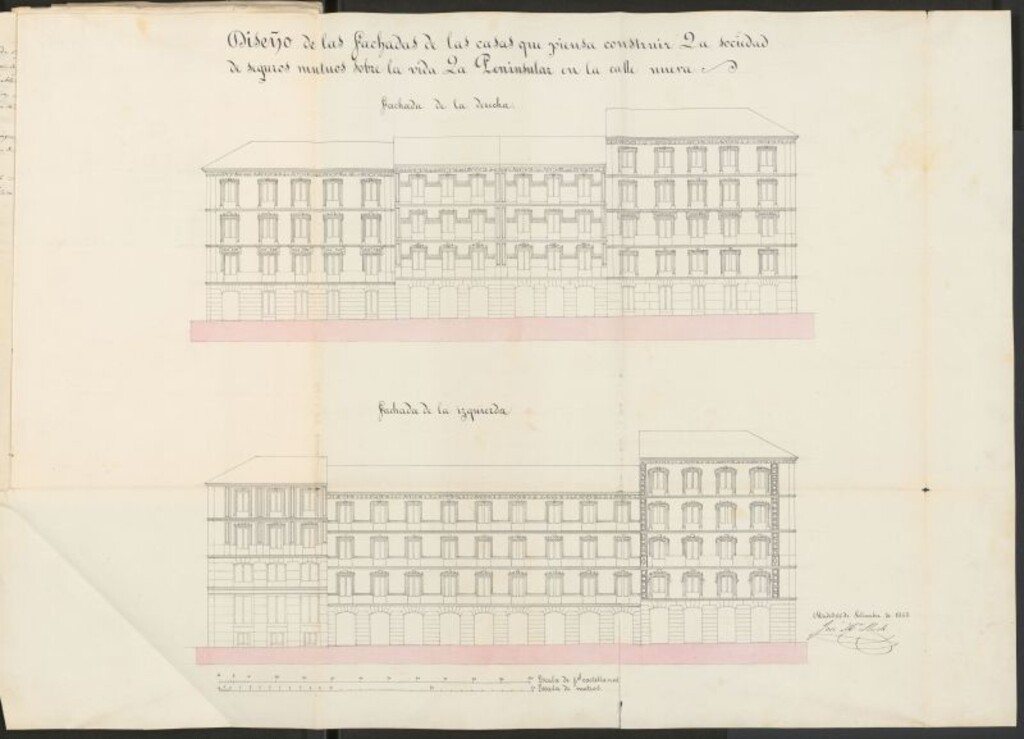 Diseño de las fachadas de las casas que piensa construir La sociedad
de seguros mutuos sobre la vida La Peninsular en la calle nueva
Fachada de la derecha.
Fachada de la izquierda
Escala de p.s castellanos
Escala de metros
Madrid de Setiembre de
José M.ª